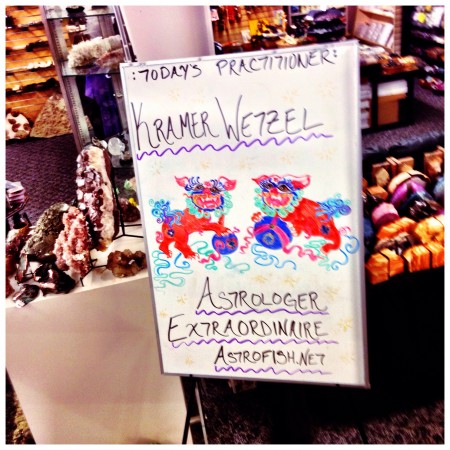 :TODAY'S PRACTITIONER:
KRAMER WETZEL
ASTROLOGER
EXTRAORDINAIRE
ASTROFISH.NET